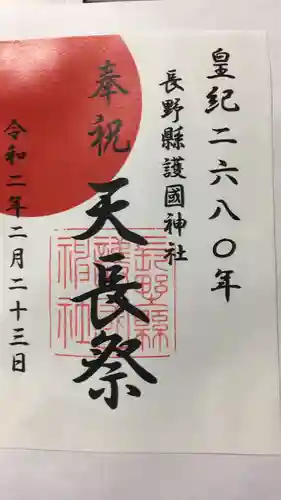 皇紀二六八〇年
長野縣護國神社
奉祝
天長祭
令和二年二月二十三日
長野縣
護國
神社